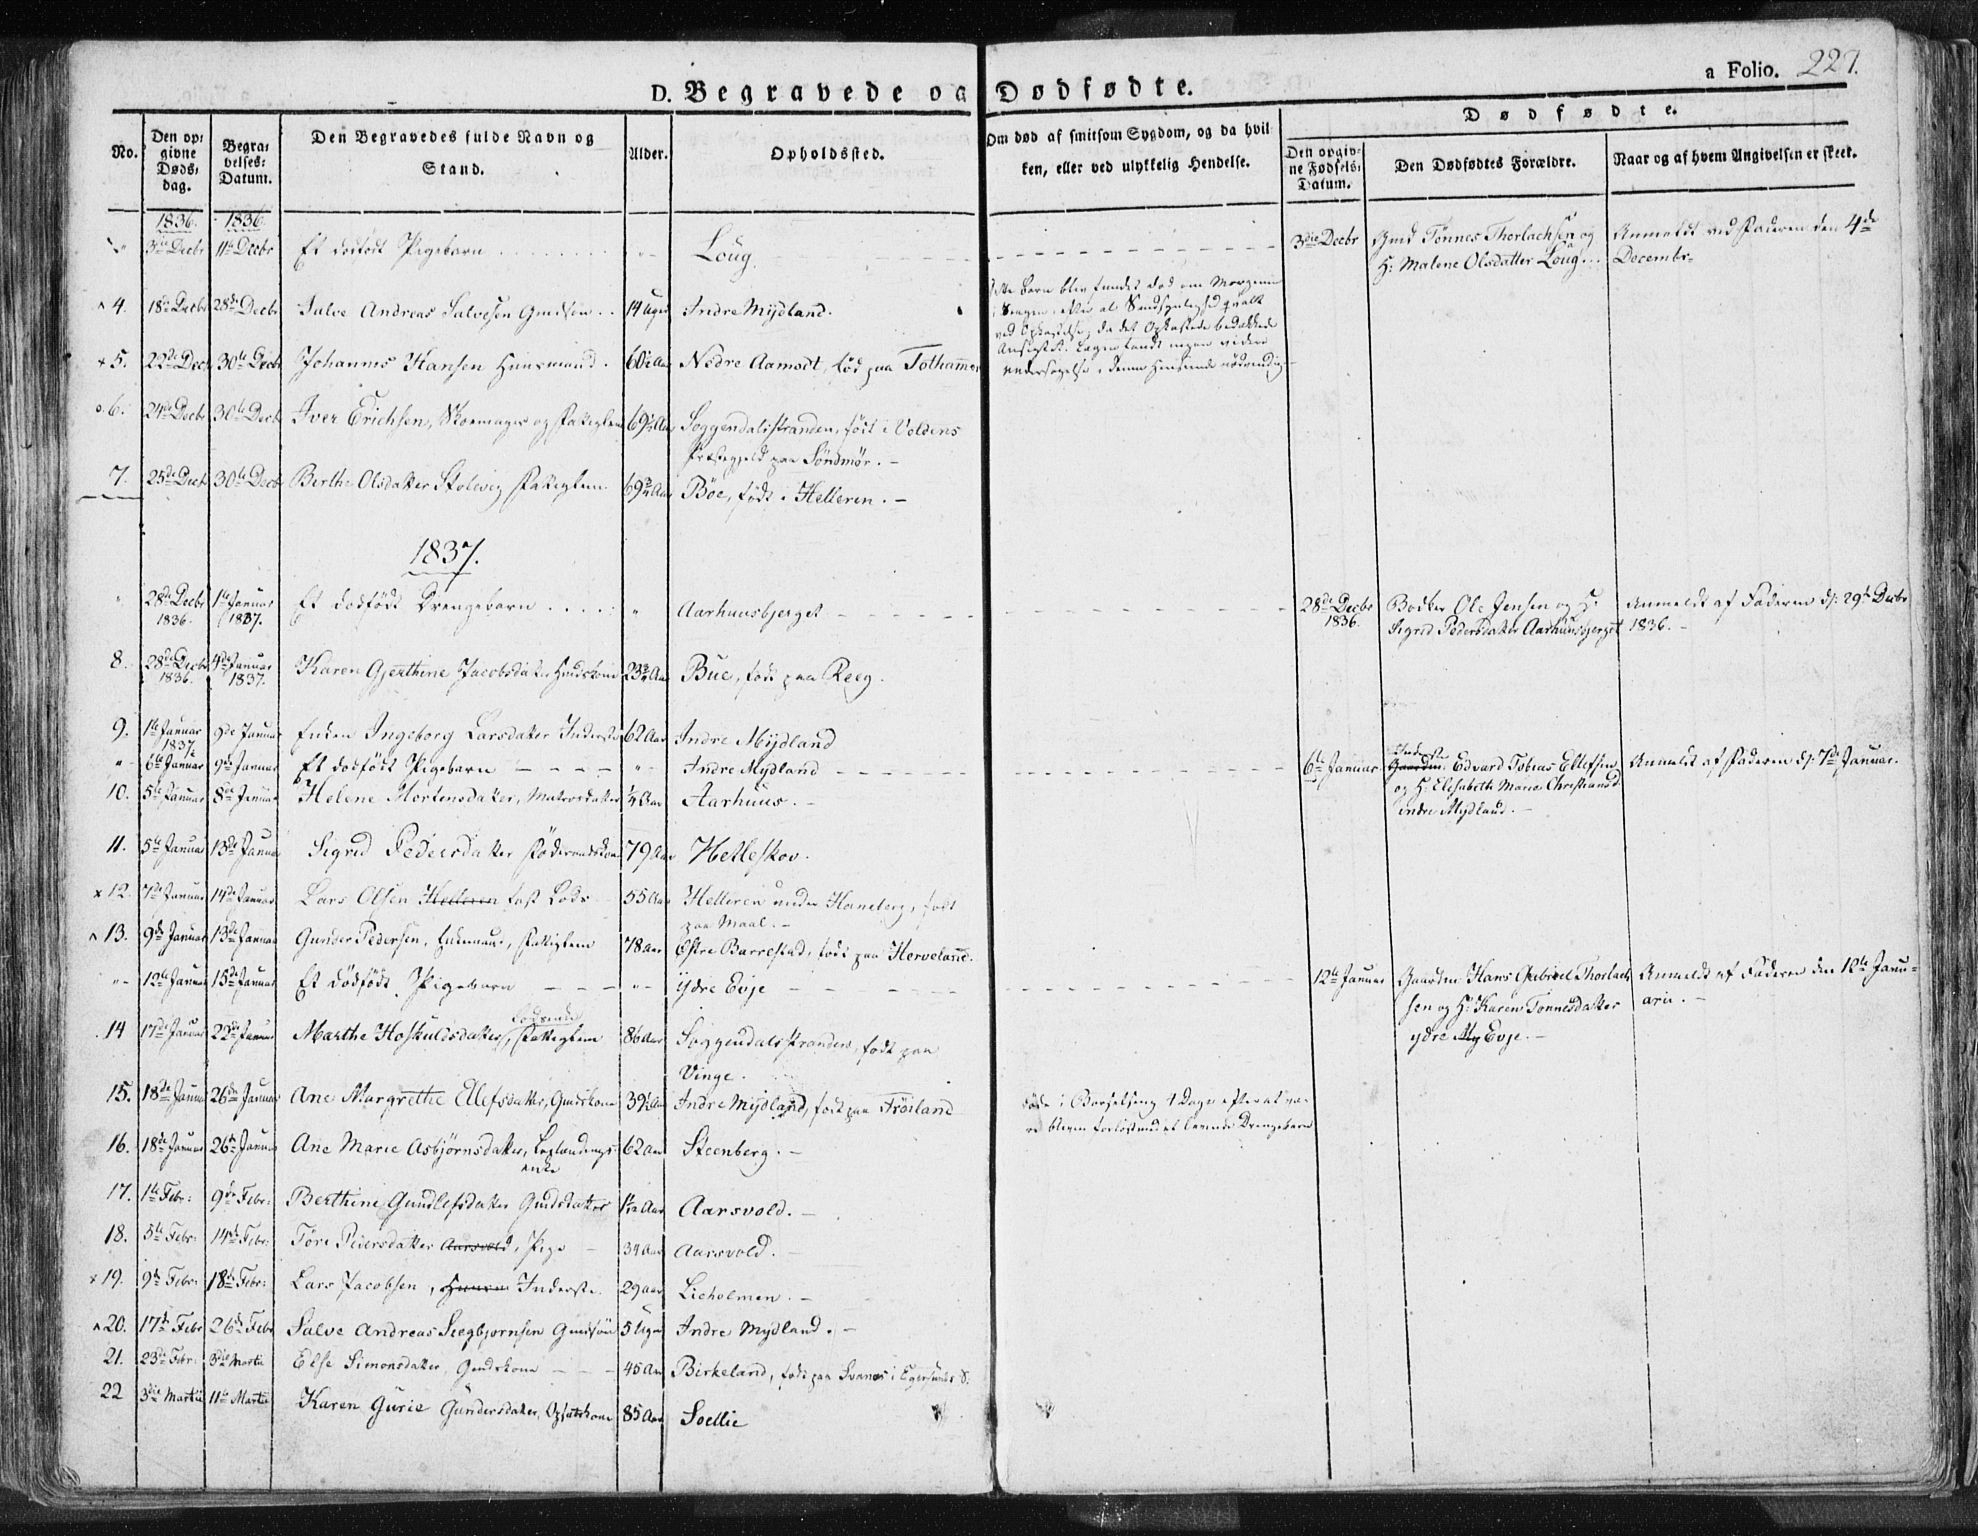 a Folio. 227.
D. Begravede og Dødfødte.
No.
Den opgivne Døds, dag.
Begravelses: Datum.
Den Begravedes fulde Navn og Stand.
Alder.
Opholdssted.
Om død af smitsom Sygdom, og da hvilken, eller ved ulykkelig Hendelse.
Dødfødte.
Den opgivne Fødsels: Datum.
Den Dødfødtes Forældre.
Naar og af hvem Angivelsen er skeet.
1836. 1836.
3die Decbr 11te Decbr Et dødfødt Pigebarn Loug. 3die Decbr Gmd Tönnes Thorlachsen og Anmeldt ved Faderen den 4de
H: Malene Olsdatter Loug... Decembr
4. 18de Decbr 28de Decbr Salve Andreas Salvesen Gmdsön 14 Uger Indre Mydland. Barn blev fundet død om Morgenen
ved Opkastelse, da det Opkastede bedækkede
5. 22de Decbr 30te Decbr Johannes Hansen Huusmand. Nedre Aamodt, fød paa Tothammer
6. 24de Decbr 30te Decbr Iver Erichsen, Skoemager og Fattiglem Soggendalsstranden, født i Voldens
Præstegjeld paa Söndmör.
7. 25de Decbr 30te Decbr Berthe Olsdatter Skolevig Fattiglem Böe, født i Helleren.
1837.
28de Decbr 1836. 1te Januar 1837. Et dødfödt Drengebarn Aarhuusbjerget 28de Decbr 1836. Bødker Ole Jensen og H. Anmeldt af Faderen d: 29de Decbr
Sigrid Pedersdatter Aarhuusbjerget 1836.
8. 28de Decbr 1836. 4de Januar 1837. Karen Gjerthine Jacobsdatter Bue, født paa Reeg.
9. 1te Januar 1837. Enken Ingeborg Larsdatter Inderste 62 Aar Indre Mydland
6te Januar 9de Januar Et dødfødt Pigebarn Indre Mydland 6te Januar Inderste Gaardm. Edvard Tobias Ellefsen Anmeldt af Faderen d: 7de Januar.
og H: Elisabeth Marie Christiansd
indre Mydland.
10. 5te Januar 8de Januar Helene Mortensdatter, Matrosdatter 1/4 Aar Aarhuus.
11. 5te Januar 13de Januar Sigrid Pedersdatter 79 Aar Hetleskov.
12. 7de Januar 14de Januar Lars Olsen Helleren fast Lods 55 Aar Helleren under Haneberg, født
paa Maal.
13. 9de Januar 13de Januar Gunder Pedersen, Enkemand, Fattiglem 78 Aar Östre Barrestad, født paa Herveland.
12te Januar 15de Januar Et dödfödt Pigebarn Ydre Evje 12te Januar Gaardm Hans Gabriel Thorlach- Anmeldt af Faderen den 12te Janu-
sen og H: Karen Tönnesdatter arii.
ydre My Evje.
14 17de Januar 22de Januar Marthe Hoskuldsdatter, Fattiglem 86 Aar Soggendalsstranden, født paa
Vinge.
15. 18de Januar 26de Januar Ane Margrethe Ellefsdatter, Gmdskone Indre Mydland, født paa Fröiland døde i Barselseng 1 Dag efter at væ-
re bleven forløst med et levende Drengebarn
16. 18de Januar 26de Januar Ane Marie Asbjörnsdatter, 62 Aar Steenberg.
enke
17. 1te Febr: 9de Febr: Berthine Gundlefsdatter Gmdsdatter Aarsvold.
18. 5te Febr: 14de Febr: Töre Peiersdatter Aarsvold, Pige 34 Aar Aarsvold.
19. 9de Febr: 18de Febr: Lars Jacobsen, Inderste 29 Aar Lieholmen.
20. 17de Febr 26de Febr Salve Andreas Siegbjørnsen Gmdsön 5 Uger Indre Mydland.
21. 23de Febr: 3die Martii Else Simonsdatter, Gmdskone 45 Aar Birkeland, født paa Svanes i Egersunds S.
22 3die Martii 11te Martii Karen Gurie Gundersdatter, 85 Aar Soellie